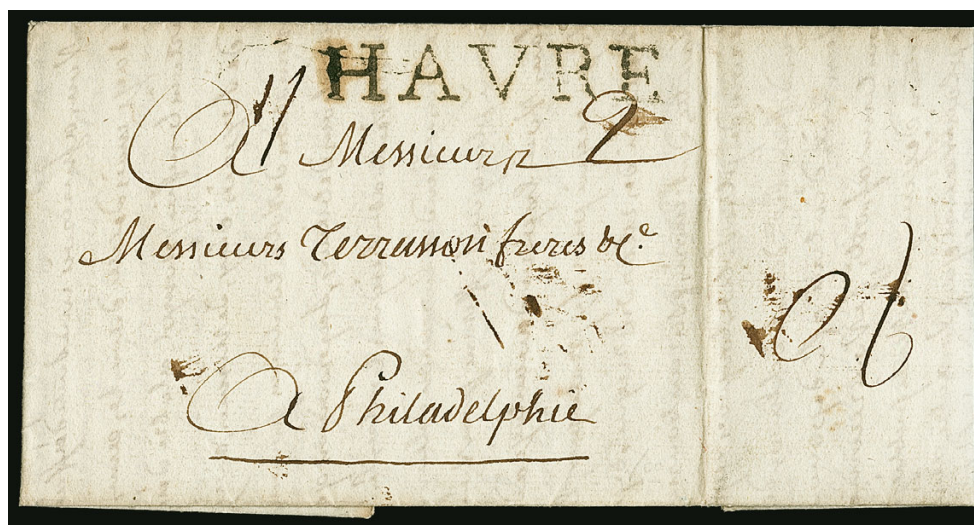 HAVRE
A Messieurs
2
Messieurs Terrasson freres & Ce
A Philadelphie